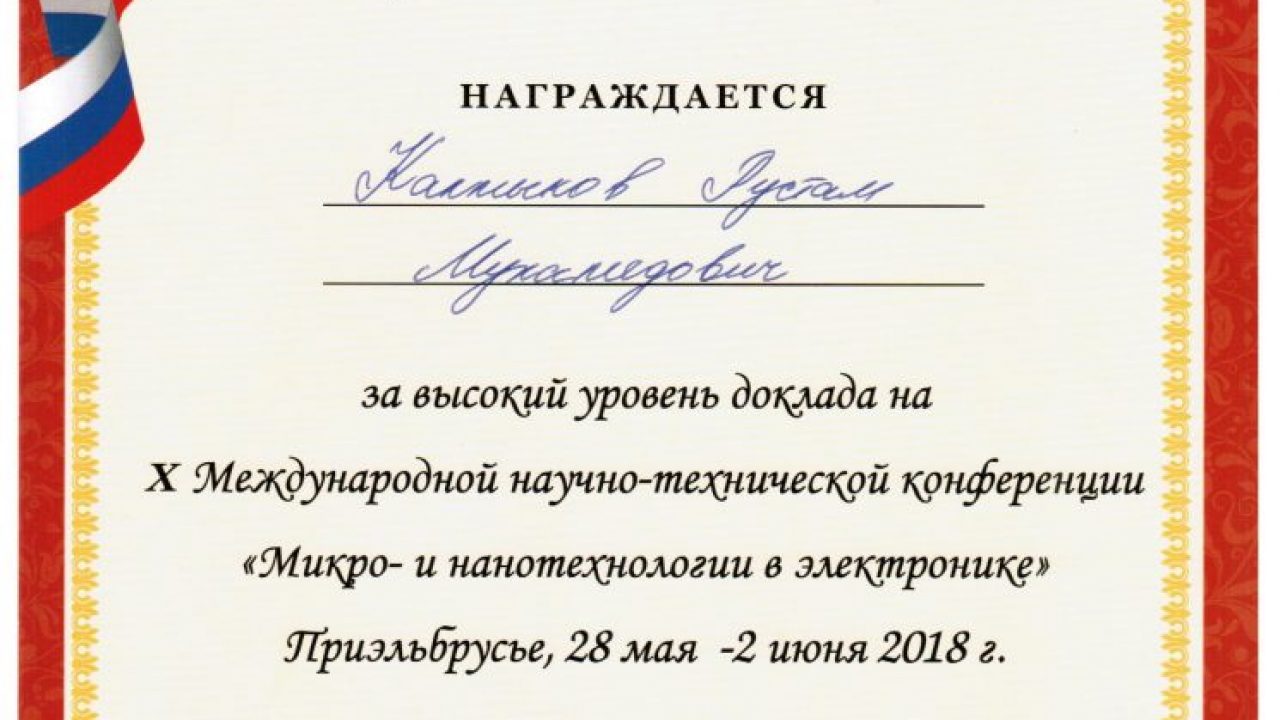 НАГРАЖДАЕТСЯ
Калмыков Рустам
Мухамедович
за высокий уровень доклада на
X Международной научно-технической конференции
«Микро- и нанотехнологии в электронике»
Приэльбрусье, 28 мая -2 июня 2018 г.